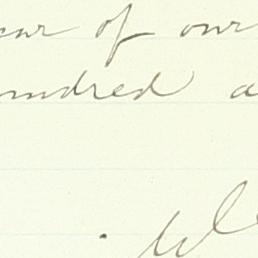 ear of our
undred a